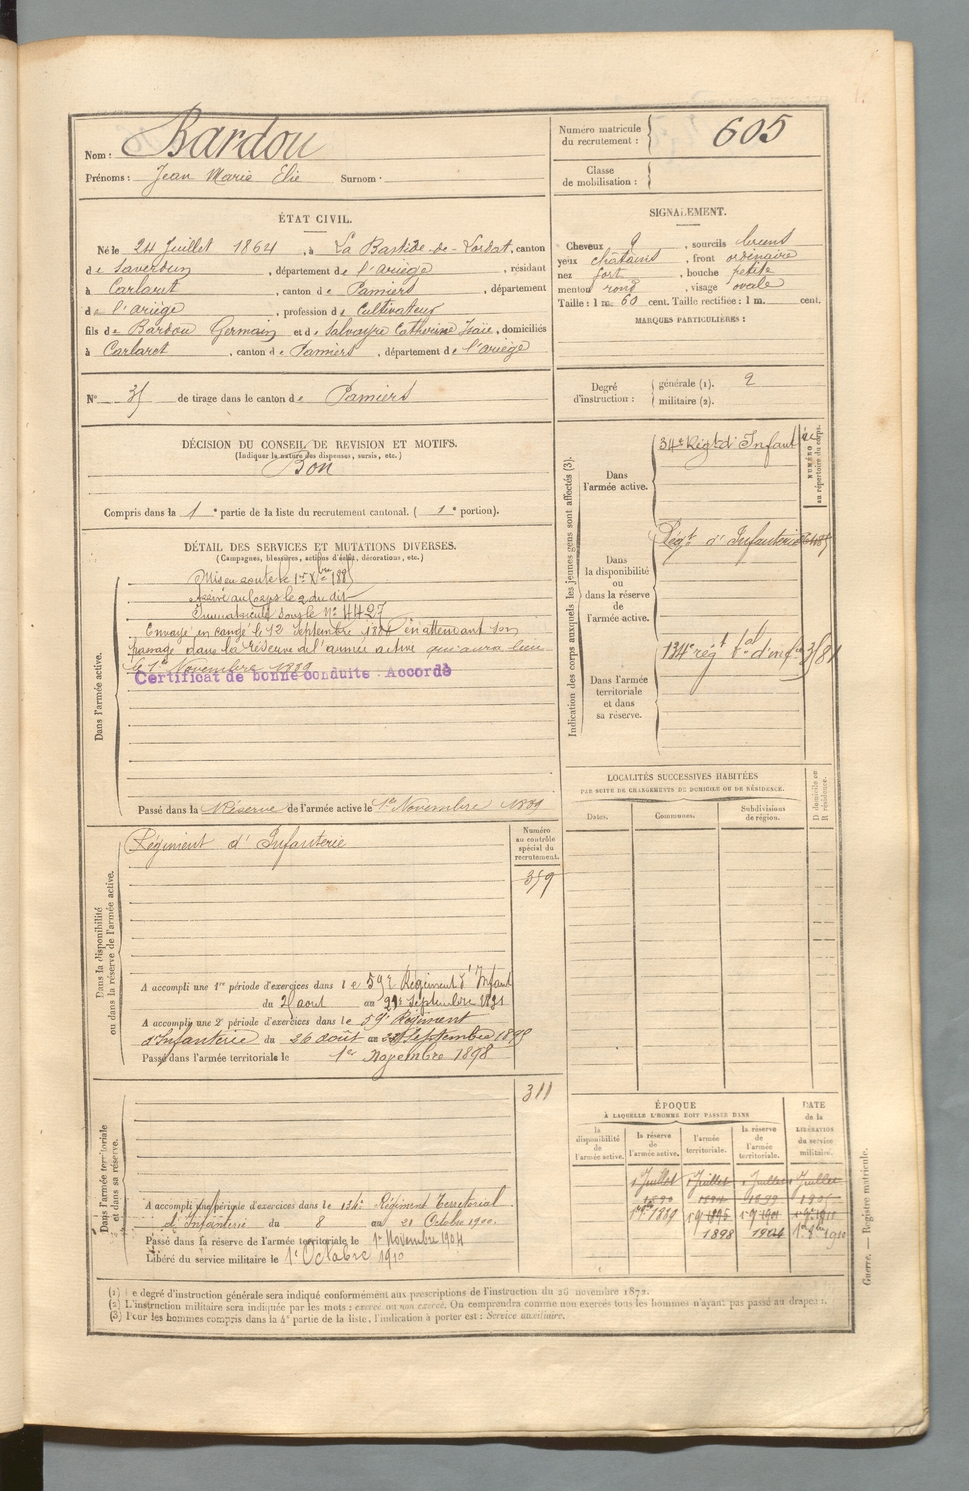 Nom : Bardou
Prénoms : Jean Marie Elie Surnom :
Numéro matricule du recrutement : 605
Classe de mobilisation :
ÉTAT CIVIL.
Né le 24 Juillet 1864, à La Bastide-de-Lordat, canton
de Saverdun, département de l'ariège, résidant
à Carlaret, canton de Pamiers, département
de l'ariège, profession de Cultivateur
fils de Bardou Germain et de Salvayre Catherine Isaïe, domiciliés
à Carlaret, canton de Pamiers, département de l'ariège
SIGNALEMENT.
Cheveux, sourcils bruns
yeux châtains, front ordinaire
nez fort, bouche petite
menton rond, visage ovale
Taille : 1 m. 60 cent. Taille rectifiée : 1 m. cent.
MARQUES PARTICULIÈRES :
N° 35 de tirage dans le canton de Pamiers
Degré d'instruction : générale (1). 2
militaire (2).
DÉCISION DU CONSEIL DE REVISION ET MOTIFS.
(Indiquer la nature des dispenses, sursis, etc.)
Bon
Compris dans la 1e partie de la liste du recrutement cantonal. ( 1e portion).
DÉTAIL DES SERVICES ET MUTATIONS DIVERSES.
(Campagnes, blessures, actions d'éclat, décorations, etc.)
Dans l'armée active.
Mis en route le 1er Xbre 1885
Arrivé au Corps le 2 du dit
Immatriculé sous le N° 4427
Envoyé en congé le 12 Septembre en attendant son
passage dans la réserve de l'armée active qui aura lieu
le 1er Novembre 1889
Certificat de bonne conduite : Accordé
Passé dans la Réserve de l'armée active le 1er Novembre 1889
Indication des corps auxquels les jeunes gens sont affectés (3).
NUMÉRO au répertoire du corps.
Dans l'armée active.
34e Régt d'Infant
Dans la disponibilité ou dans la réserve de l'armée active.
Régt d'Infanterie
Dans l'armée territoriale et dans sa réserve.
134e régt tal d'inf
LOCALITÉS SUCCESSIVES HABITÉES
PAR SUITE DE CHANGEMENTS DE DOMICILE OU DE RÉSIDENCE.
Dates. Communes. Subdivisions de région. D domicile ou R résidence.
Dans la disponibilité ou dans la réserve de l'armée active.
Régiment d'Infanterie
Numéro au contrôle spécial du recrutement.
359
A accompli une 1re période d'exercices dans le 59e Régiment d'Infant
du août au Septembre 1891
A accompli une 2e période d'exercices dans le 59e Régiment
d'Infanterie du 26 août au Septembre 1895
Passé dans l'armée territoriale le 1er Novembre 1898
Dans l'armée territoriale et dans sa réserve.
311
A accompli une période d'exercices dans le 134e Régiment Territorial
d'Infanterie du 8 au 21 Octobre 1900.
Passé dans sa réserve de l'armée territoriale le 1er Novembre 1904
Libéré du service militaire le 1er Octobre 1910
ÉPOQUE
À LAQUELLE L'HOMME DOIT PASSER DANS
DATE de la LIBÉRATION du service militaire.
la disponibilité de l'armée active. la réserve de l'armée active. l'armée territoriale. la réserve de l'armée territoriale.
1 Juillet 1 Juillet 1 Juillet 1 Juillet
1889
1898 1904 1910
(1) Le degré d'instruction générale sera indiqué conformément aux prescriptions de l'instruction du 26 novembre 1872.
(2) L'instruction militaire sera indiquée par les mots : exercé ou non exercé. On comprendra comme non exercés tous les hommes n'ayant pas passé au drapeau.
(3) Pour les hommes compris dans la 4e partie de la liste, l'indication à porter est : Service auxiliaire.
Guerre. — Registre matricule.